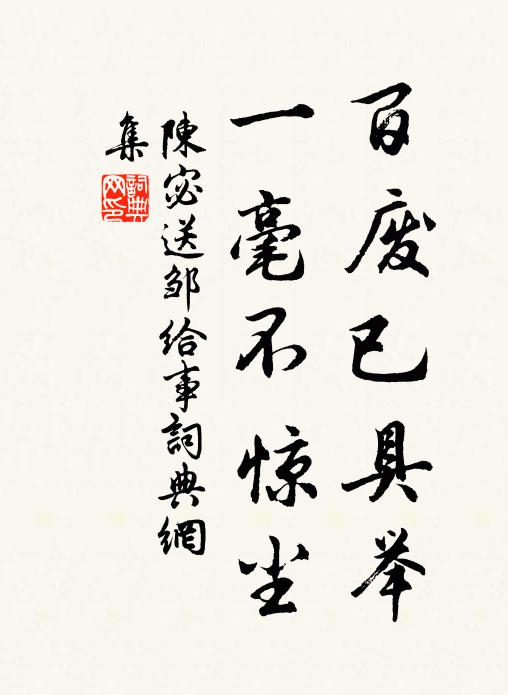 百废已具举
一毫不惊尘
陳宓送邹给事詞典網
集
詞典
网印